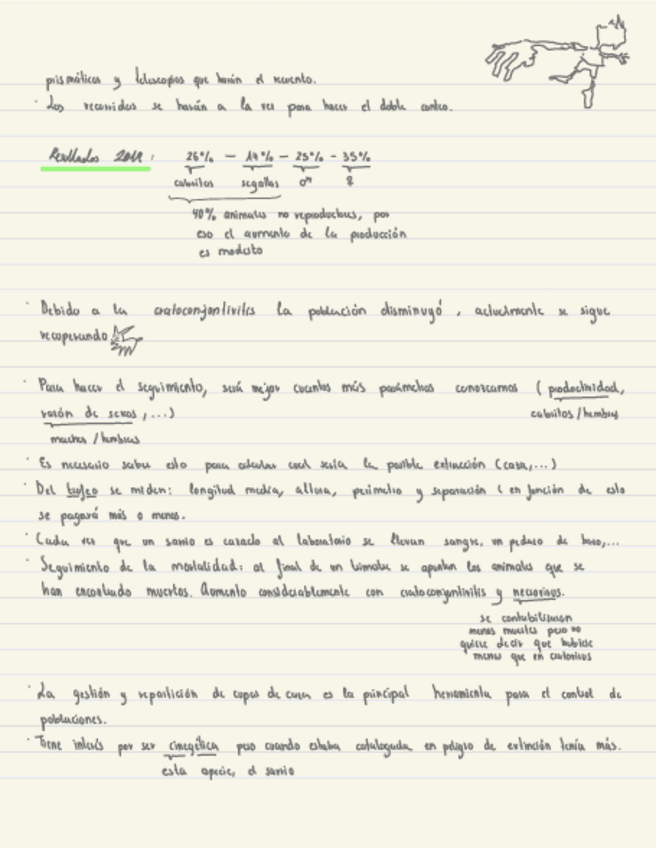 prismáticos y telescopios que harán el recuento.
· Los recorridos se harán a la vez para hacer el doble conteo.
Resultados :
26% – 14% – 25% – 35%
cabritos segallos ♂ ♀
40% animales no reproductores, por
eso el aumento de la producción
es modesto
· Debido a la queratoconjuntivitis la población disminuyó, actualmente se sigue
recuperando
· Para hacer el seguimiento, será mejor cuantos más parámetros conozcamos (productividad,
razón de sexos, ...) cabritos/hembras
machos/hembras
· Es necesario saber esto para calcular cual sería la posible extracción (caza,...)
· Del trofeo se miden: longitud media, altura, perímetro y separación (en función de esto
se pagará más o menos.
· Cada vez que un sarrio es cazado al laboratorio se llevan sangre, un pedazo de bazo,...
· Seguimiento de la mortalidad: al final de un bimestre se apuntan los animales que se
han encontrado muertos. Aumento considerablemente con queratoconjuntivitis y
se contabilizaron
menos muertes pero no
quiere decir que hubiese
menos que en
· La gestión y repartición de cupos de caza es la principal herramienta para el control de
poblaciones.
· Tiene interés por ser cinegética pero cuando estaba catalogada en peligro de extinción tenía más.
esta especie, el sarrio